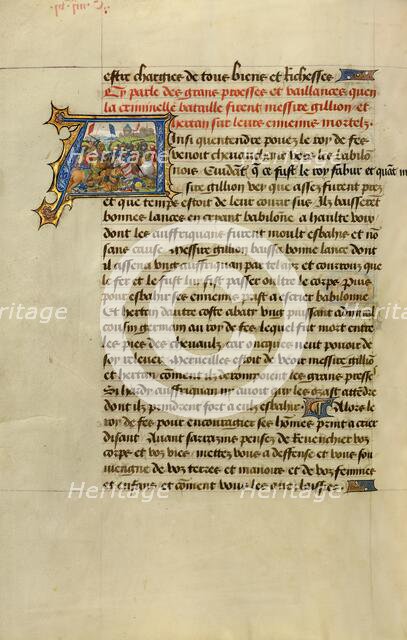 estre chargies de tous biens et Richesses
Cy parle des grans proesses et vaillances quen
la criminelle bataille firent messire gillion et
hertan sur leurs ennemis mortelz
Ainsi quentendre pouez le roy de fes
venoit chevauchant vers les babilo
nois Cuidant q̄ ce fust le roy fabur et quāt m
sire gillion vey que assez furent prez
et que temps estoit de leur courir sus Ilz baisserēt
bonnes lances en criant babilōne a haulte voix
dont les auffriquans furent moult esbahis et nō
sans cause Messire gillion baissa bonne lance dont
il assena vng auffriquan par tel air et couroux que
le fer et le fust luy fist passer oultre le corps Puis
pour esbahir ses ennemis prist a escrier babilonne
Et hertan dautre coste abatit vng puissant admiral
cousin germain au roy de fes lequel fut mort entre
les piez des chevaulx car oncques neut pouoir de
soy relever Merveilles estoit de veoir messire gilliō
et hertan cōment ilz derompoient les grans presses
Si hardy auffriquan ny avoit qui les osast attēdre
dont ilz prindrent fort a eulz esbahir Alors le
roy de fes pour encouragier ses hōmes print a crier
disant Avant sarrazins pensez de Revenchier voz
corps et voz vies mettez vous a deffense et vous sou
viengne de voz terres et manoirs et de voz femmes
et enfans et cōment vous les avez laissiez
Heritage
Heritage
Heritage
Heritage
Heritage
Heritage